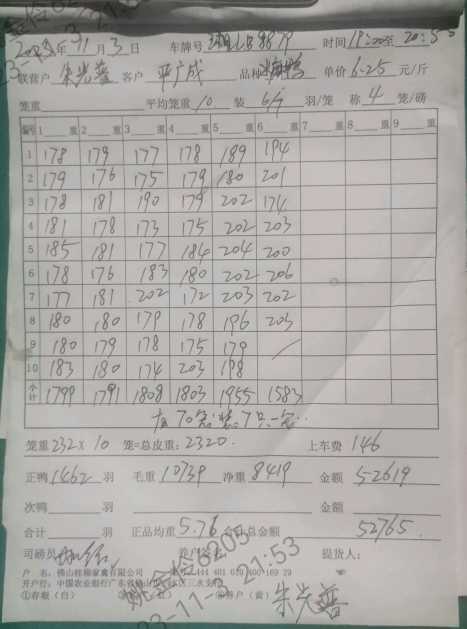 2023年11月3日 车牌号 8879 时间19:00至20:5
联营户 朱光普 客户 平广成 品种 单价6.25元/斤
笼重 平均笼重10 装6/7羽/笼 称4笼/磅
编号 1 重 2 重 3 重 4 重 5 重 6 重 7 重 8 重 9 重
1 178 179 177 178 189 194
2 179 176 175 179 180 201
3 178 181 190 179 202 174
4 181 178 173 175 202 203
5 185 181 177 184 204 200
6 178 176 183 180 202 206
7 177 181 202 172 203 202
8 180 180 179 178 196 203
9 180 179 178 175 179
10 183 180 174 203 198
小计 1799 1791 1808 1803 1955 1583
有70笼装7只一笼
笼重232×10 笼=总皮重:2320. 上车费 146
正鸭1462羽 毛重10739 净重8419 金额52619
次鸭 羽 金额
合计 羽 正品均重5.76 合计总金额 52765.
司磅员 养户签名 提货人:
户 名:佛山 家禽有限公司
开户行:中国农业银行广东省
①存根(白) 客户(黄) 朱光普
21:53